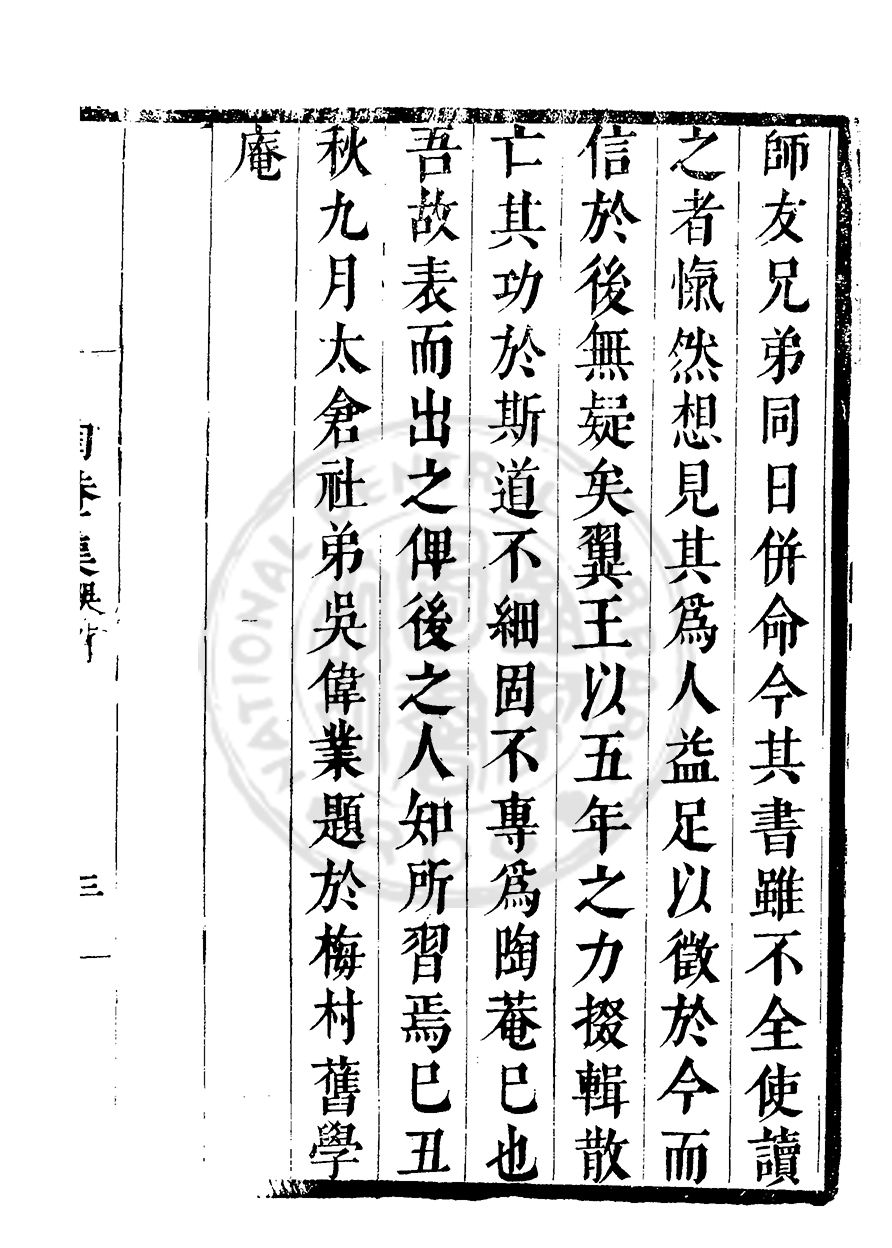 師友兄弟同日併命今其書雖不全使讀
之者愾然想見其爲人益足以徵於今而
信於後無疑矣翼王以五年之力掇輯散
亡其功於斯道不細固不專爲陶菴巳也
吾故表而出之俾後之人知所習焉巳丑
秋九月太倉社弟吳偉業題於梅村舊學
庵
三
NATIONAL CENTRAL